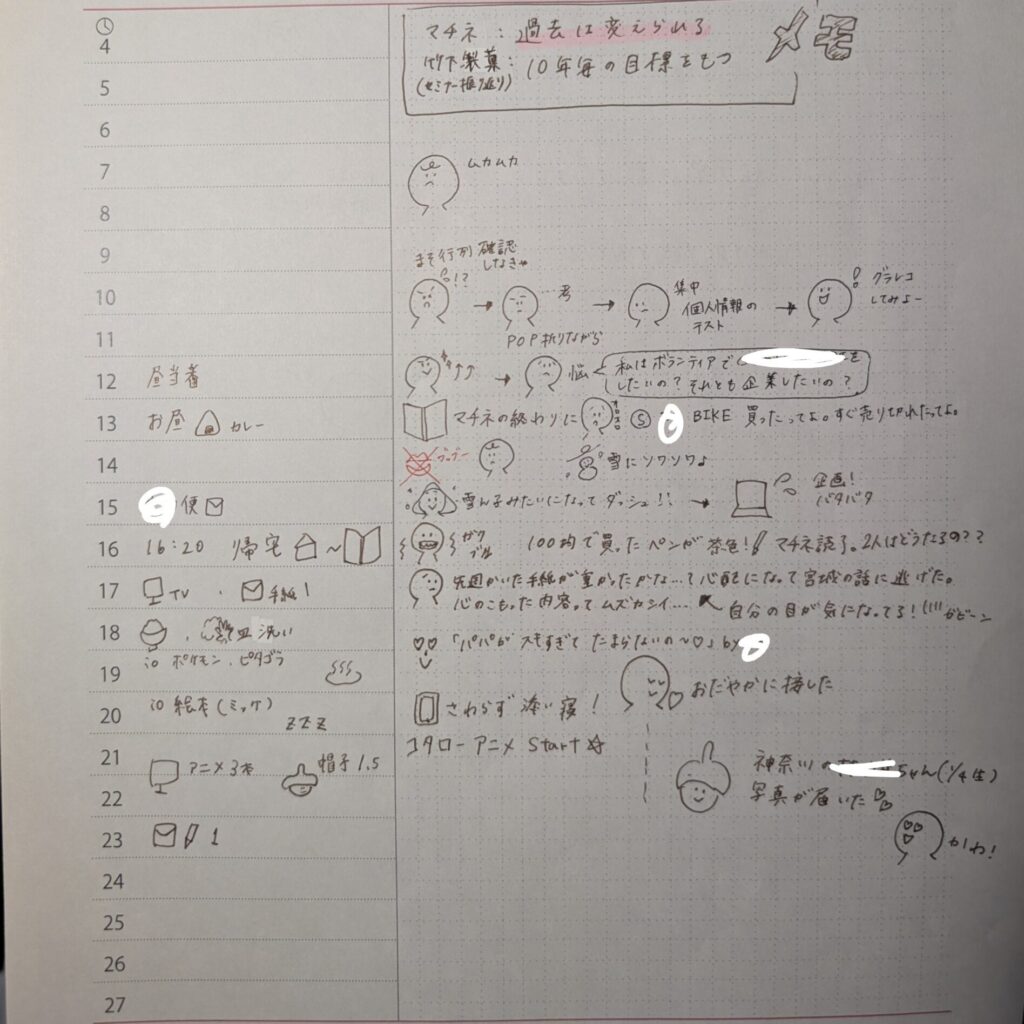 メモ
マチネ：過去は変えられる
竹下製菓：10年毎の目標をもつ
(セミナー振り返り)
4
5
6
7
ムカムカ
8
9
まず行列確認
しなきゃ
!?
10
考
集中
個人情報の
テスト
グラレコ
してみよー
11
POP折りながら
12
昼当番
↑↑
悩
私はボランティアで
を
したいの？それとも企業したいの？
13
お昼
カレー
マチネの終わりに
Ⓢ
BIKE 買ったってよ。すぐ売り切れたってよ。
14
ブッブー
雪にソワソワよ
15
便
雪ん子みたいになってダッシュ!!
企画!
バタバタ
16
16:20 帰宅
～
ガク
ブル
100均で買ったペンが茶色!! マチネ読了。2人はどうなるの??
17
TV ・
手紙1
先週かいた手紙が重かったかな…て心配になって宮城の話に逃げた。
心のこもった内容ってムズカシイ…
自分の目が気になってる!
ガビーン
18
皿洗い
「パパがスキすぎてたまらないの～♡」by
19
io ポケモン、ピタゴラ
おだやかに接した
20
io 絵本(ミッケ)
ZZZ
さわらず添い寝!
21
アニメ3本
帽子1.5
コタローアニメ Start☆
神奈川の
ちゃん(1/4生)
写真が届いた
22
23
1
かわ!
24
25
26
27